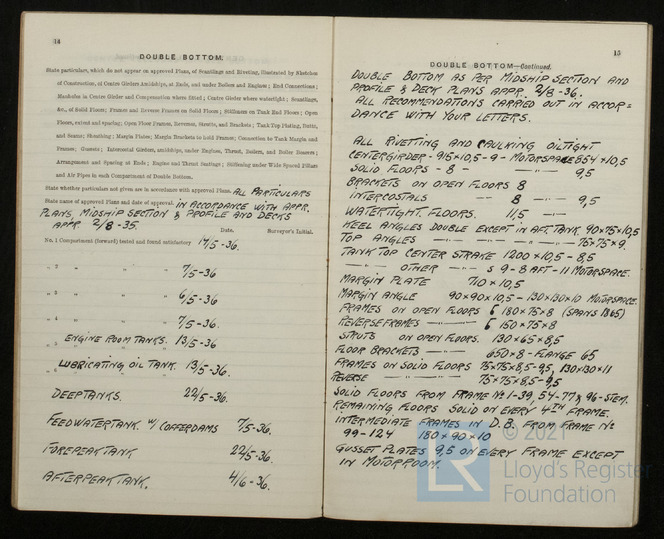 14
DOUBLE BOTTOM.
State particulars, which do not appear on approved Plans, of Scantlings and Riveting, illustrated by Sketches
of Construction, of Centre Girders Amidships, at Ends, and under Boilers and Engines; End Connections;
Manholes in Centre Girder and Compensation where fitted; Centre Girder where watertight; Scantlings,
&c., of Solid Floors; Frames and Reverse Frames on Solid Floors; Stiffeners on Tank End Floors; Open
Floors, extent and spacing; Open Floor Frames, Reverses, Struts, and Brackets; Tank Top Plating, Butts,
and Seams; Sheathing; Margin Plates; Margin Brackets to Hold Frames; Connection to Tank Margin and
Frames; Gussets; Intercostal Girders, amidships, under Engines, Thrust, Boilers, and Boiler Bearers;
Arrangement and Spacing at Ends; Engine and Thrust Seatings; Stiffening under Wide Spaced Pillars
and Air Pipes in each Compartment of Double Bottom.
State whether particulars not given are in accordance with approved Plans. ALL PARTICULARS
State name of approved Plans and date of approval. IN ACCORDANCE WITH APPR.
PLANS, MIDSHIP SECTION & PROFILE AND DECKS
APPR. 2/8-35.
Date. Surveyor's Initial.
No. 1 Compartment (forward) tested and found satisfactory 14/5-36.
„ 2 „ „ „ 7/5-36
„ 3 „ „ „ 6/5-36
„ 4 „ „ „ 7/5-36.
„ 5 ENGINE ROOM TANKS. 13/5-36
„ 6 LUBRICATING OIL TANK. 13/5-36.
DEEPTANKS. 22/5-36.
FEEDWATERTANK. W/ COFFERDAMS 7/5-36.
FOREPEAKTANK 22/5-36.
AFTERPEAKTANK. 4/6-36.
15
DOUBLE BOTTOM—Continued.
DOUBLE BOTTOM AS PER MIDSHIP SECTION AND
PROFILE & DECK PLANS APPR. 2/8-36.
ALL RECOMMENDATIONS CARRED OUT IN ACCOR=
DANCE WITH YOUR LETTERS.
ALL RIVETTING AND CAULKING OILTIGHT
CENTERGIRDER - 915×10,5 - 9 - MOTORSPACE 854×10,5
SOLID FLOORS - 8 - —"— 9,5
BRACKETS ON OPEN FLOORS 8
INTERCOSTALS — 8 —"— 9,5
WATERTIGHT. FLOORS. 11,5 —"—
HEEL ANGLES DOUBLE EXCEPT IN AFT. TANK. 90×75×10,5
TOP ANGLES —"— —"— —"— 75×75×9.
TANK TOP CENTER STRAKE 1200×10,5 - 8,5
—"— OTHER —"— S 9-8 AFT - 11 MOTORSPACE.
MARGIN PLATE 710×10,5
MARGIN ANGLE 90×90×10,5 - 130×130×10 MOTORSPACE.
FRAMES ON OPEN FLOORS [ 180×75×8 (SPANS 1865)
REVERSEFRAMES —"— [ 150×75×8
STRUTS ON OPEN FLOORS. 130×65×8,5
FLOOR BRACKETS —"— 650×8 - FLANGE 65
FRAMES ON SOLID FLOORS 75×75×8,5-9,5, 130×130×11
REVERSE —"— 75×75×8,5-9,5
SOLID FLOORS FROM FRAME Nº 1-39, 54-77 & 96-STEM.
REMAINING FLOORS SOLID ON EVERY 4TH FRAME.
INTERMEDIATE FRAMES IN D.B. FROM FRAME Nº
99-124 180×90×10
GUSSET PLATES 9,5 ON EVERY FRAME EXCEPT
IN MOTORROOM.
© 2021
LR
Lloyd's Register
Foundation